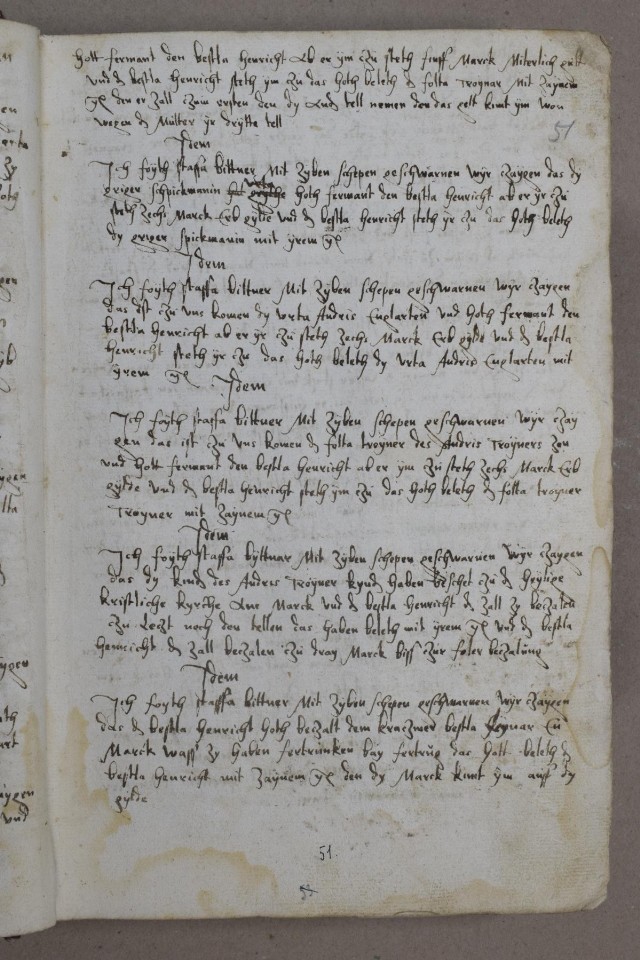 Hott fermant den bestla Henricht Ab er ym czu steth funff Marck Miterlich gutt
vnd d bestla Henricht steth ym czu das Hoth beleth d folta Troynar Mit Zaynem
den er Zall czum ersten den dy tell nemen den das gelt kimt ym won
wegen d Mutter yr drytte tell
51
Idem
Ich foyth staffa bittner Mit Zyben schepen geschwarnen wyr czaygen das dy
griger schpickmanin Hoth fermant den bestla Henricht ab er yr czu
steth Zechs Marck Erb gylde vnd d bestla Henricht steth yr zu das Hoth beleth
dy griger spickmanin mit yrem
Idem
Ich foyth staffa bittner Mit Zyben schepen geschwarnen wyr czaygen
das ist czu vns komen dy vrta Andris Englarten vnd Hoth fermant den
bestla Henricht ab er yr czu steth Zechs Marck Erb gylde vnd d bestla
Henricht steth yr zu das Hoth beleth dy vrta Andris Englarten mit
yrem
Idem
Ich foyth staffa bittner Mit Zyben schepen geschwarnen wyr czay
gen das ist zu vns komen d folta troyner des Andris Troyners Zon
vnd Hott fermant den bestla Henricht ab er ym zu steth Zechs Marck Erb
gylde vnd d bestla Henricht steth ym czu das Hoth beleth d folta troyner
Troyner mit Zaynem
Idem
Ich foyth staffa byttnar Mit Zyben schepen geschwarnen wyr czaygen
das dy kind des Andris Troyner kynd Haben beschet czu d Heylige
kristliche kyrche Ane Marck vnd d bestla Henricht d Zall Zy beczalen
Zu Leczt noch den tellen das Haben beleth mit yrem vnd d bestla
Henricht d Zall beczalen zu dray Marck biss zur foler beczalung
Idem
Ich foyth staffa bittner Mit Zyben schepen geschwarnen wyr czaygen
das d bestla Henricht Hoth beczalt dem kraczmer bestla
Marck wass Zy Haben fertrunken bay fertrug das Hott beleth d
bestla Henricht mit Zaynem den dy Marck kimt ym auff dy
gylde
51.